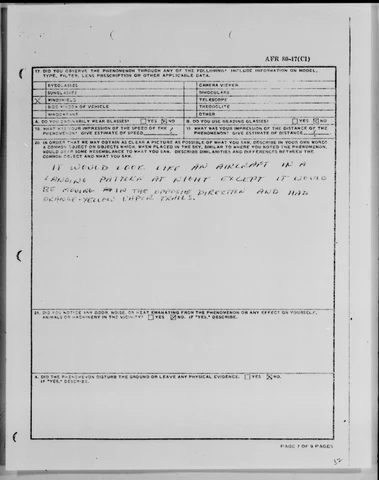 AFR 80-17(C1)
17. DID YOU OBSERVE THE PHENOMENON THROUGH ANY OF THE FOLLOWING? INCLUDE INFORMATION ON MODEL,
TYPE, FILTER, LENS PRESCRIPTION OR OTHER APPLICABLE DATA.
EYEGLASSES CAMERA VIEWER
SUNGLASSES BINOCULARS
X WINDSHIELD TELESCOPE
SIDE WINDOW OF VEHICLE THEODOLITE
OTHER
A. DO YOU ORDINARILY WEAR GLASSES? YES X NO B. DO YOU USE READING GLASSES? YES X NO
18. WHAT WAS YOUR IMPRESSION OF THE SPEED OF THE 19. WHAT WAS YOUR IMPRESSION OF THE DISTANCE OF THE
PHENOMENON? GIVE ESTIMATE OF SPEED PHENOMENON? GIVE ESTIMATE OF DISTANCE
20. IN ORDER THAT WE MAY OBTAIN AS CLEAR A PICTURE AS POSSIBLE OF WHAT YOU SAW, DESCRIBE IN YOUR OWN WORDS
A COMMON OBJECT OR OBJECTS WHICH, WHEN PLACED IN THE SKY, SIMILAR TO WHERE YOU NOTED THE PHENOMENON,
WOULD BEAR SOME RESEMBLANCE TO WHAT YOU SAW. DESCRIBE SIMILARITIES AND DIFFERENCES BETWEEN THE
COMMON OBJECT AND WHAT YOU SAW.
IT WOULD LOOK LIKE AN AIRCRAFT IN A
LANDING PATTERN AT NIGHT EXCEPT IT WOULD
BE MOVING IN THE OPPOSITE DIRECTION AND HAD
ORANGE-YELLOW VAPOR TRAILS.
21. DID YOU NOTICE ANY ODOR, NOISE, OR HEAT EMANATING FROM THE PHENOMENON OR ANY EFFECT ON YOURSELF,
ANIMALS OR MACHINERY IN THE VICINITY? YES X NO. IF "YES," DESCRIBE.
A. DID THE PHENOMENON DISTURB THE GROUND OR LEAVE ANY PHYSICAL EVIDENCE. YES X NO.
IF "YES," DESCRIBE.
PAGE 7 OF 9 PAGES